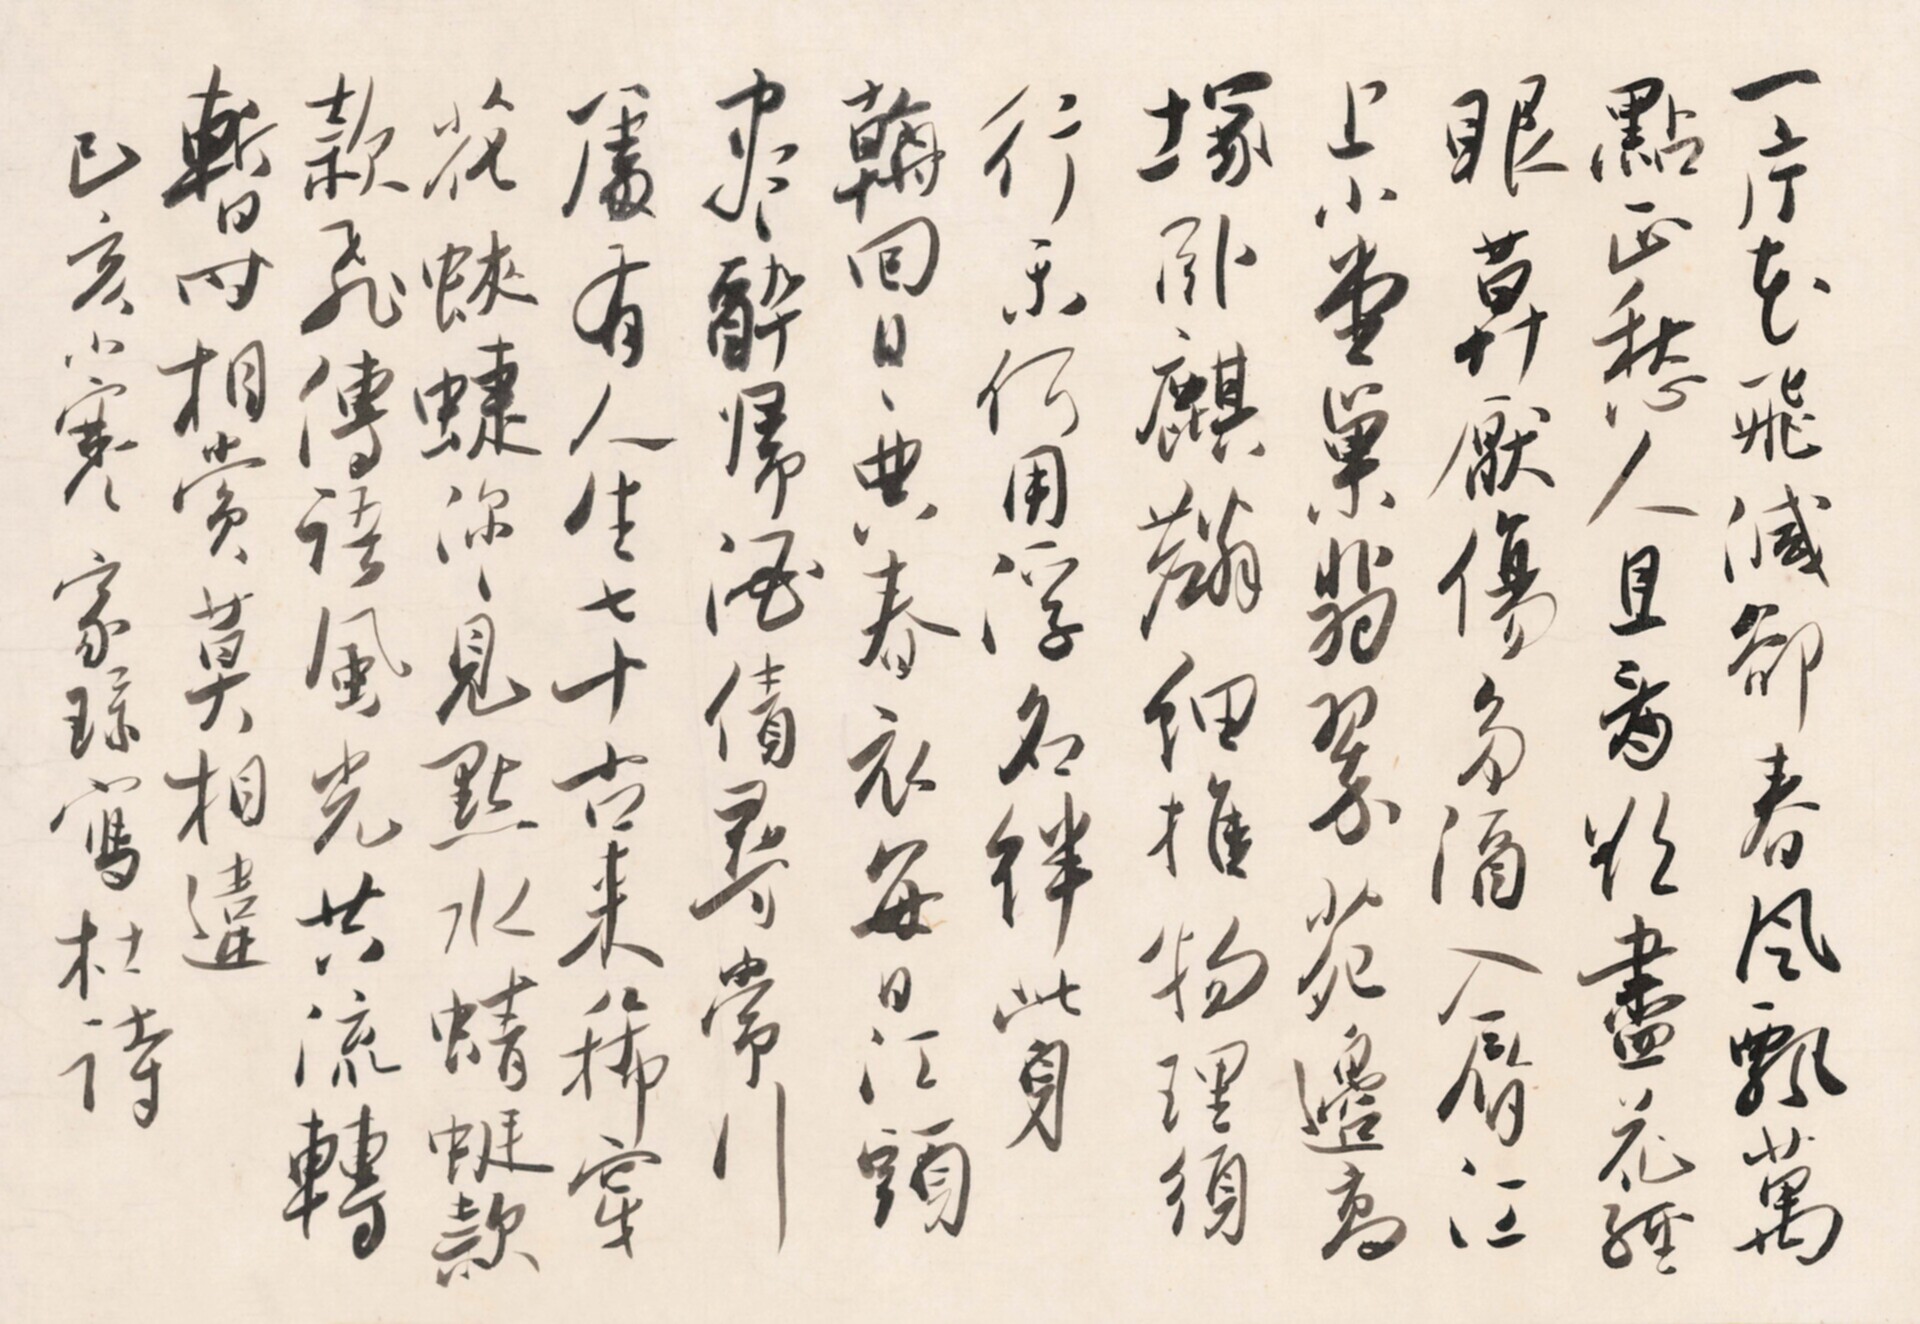 一片花飛減卻春風飄萬
點正愁人且看欲盡花經
眼莫厭傷多酒入脣江
上小堂巢翡翠苑邊高
塚臥麒麟細推物理須
行樂何用浮名絆此身
朝回日々典春衣每日江頭
盡醉歸酒債尋常行
處有人生七十古來稀穿
花蛺蝶深々見點水蜻蜓款
款飛傳語風光共流轉
暫時相賞莫相違
己亥小寒家琮寫杜詩